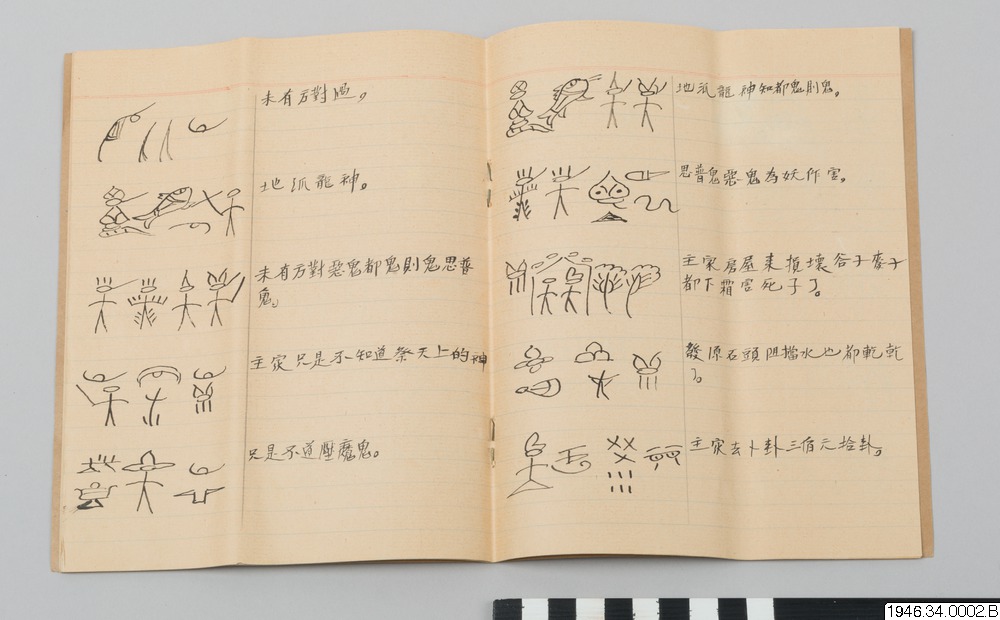 未有方對過。
地派龍神。
未有方對惡鬼都鬼則鬼思普
鬼。
主家只是不知道祭天上的神
只是不道壓魔鬼。
地派龍神知都鬼則鬼。
思普鬼惡鬼為妖作害。
主家房屋来損壞谷子麥子
都下霜害死子了。
發原石頭阻擋水也都乾乾
了。
主家去卜卦三佰元拾卦。
1946.34.0002.B